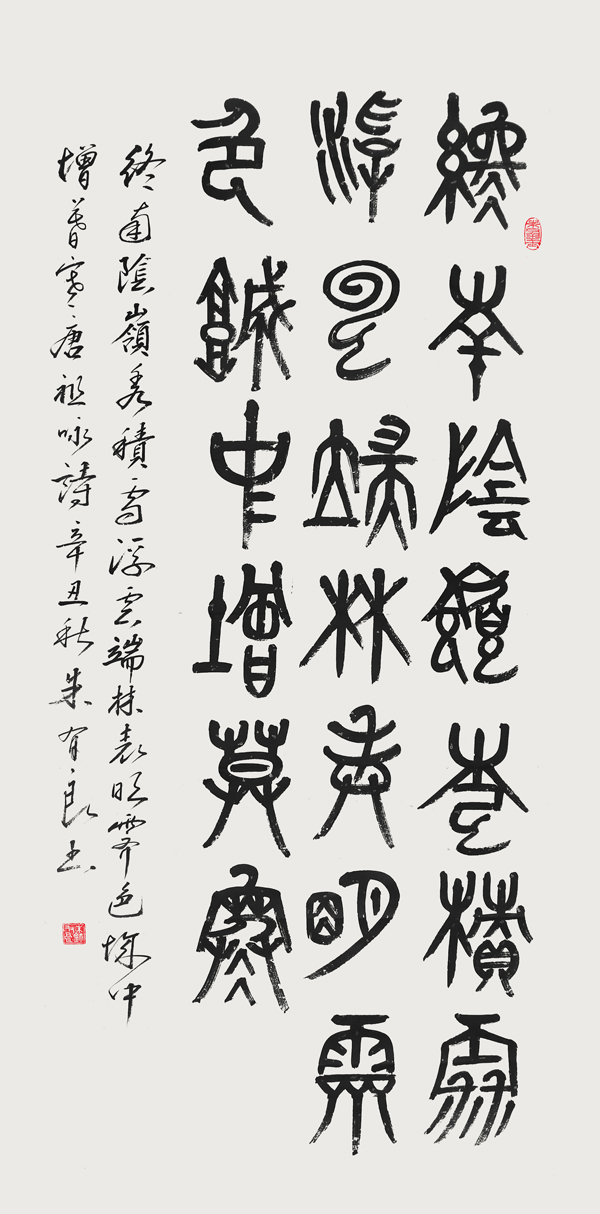 終南陰嶺秀積雪
浮云端林表明霽
色城中增莫寒
終南陰嶺秀積雪浮云端林表明霽色城中
增暮寒唐祖咏詩辛丑秋朱有良书